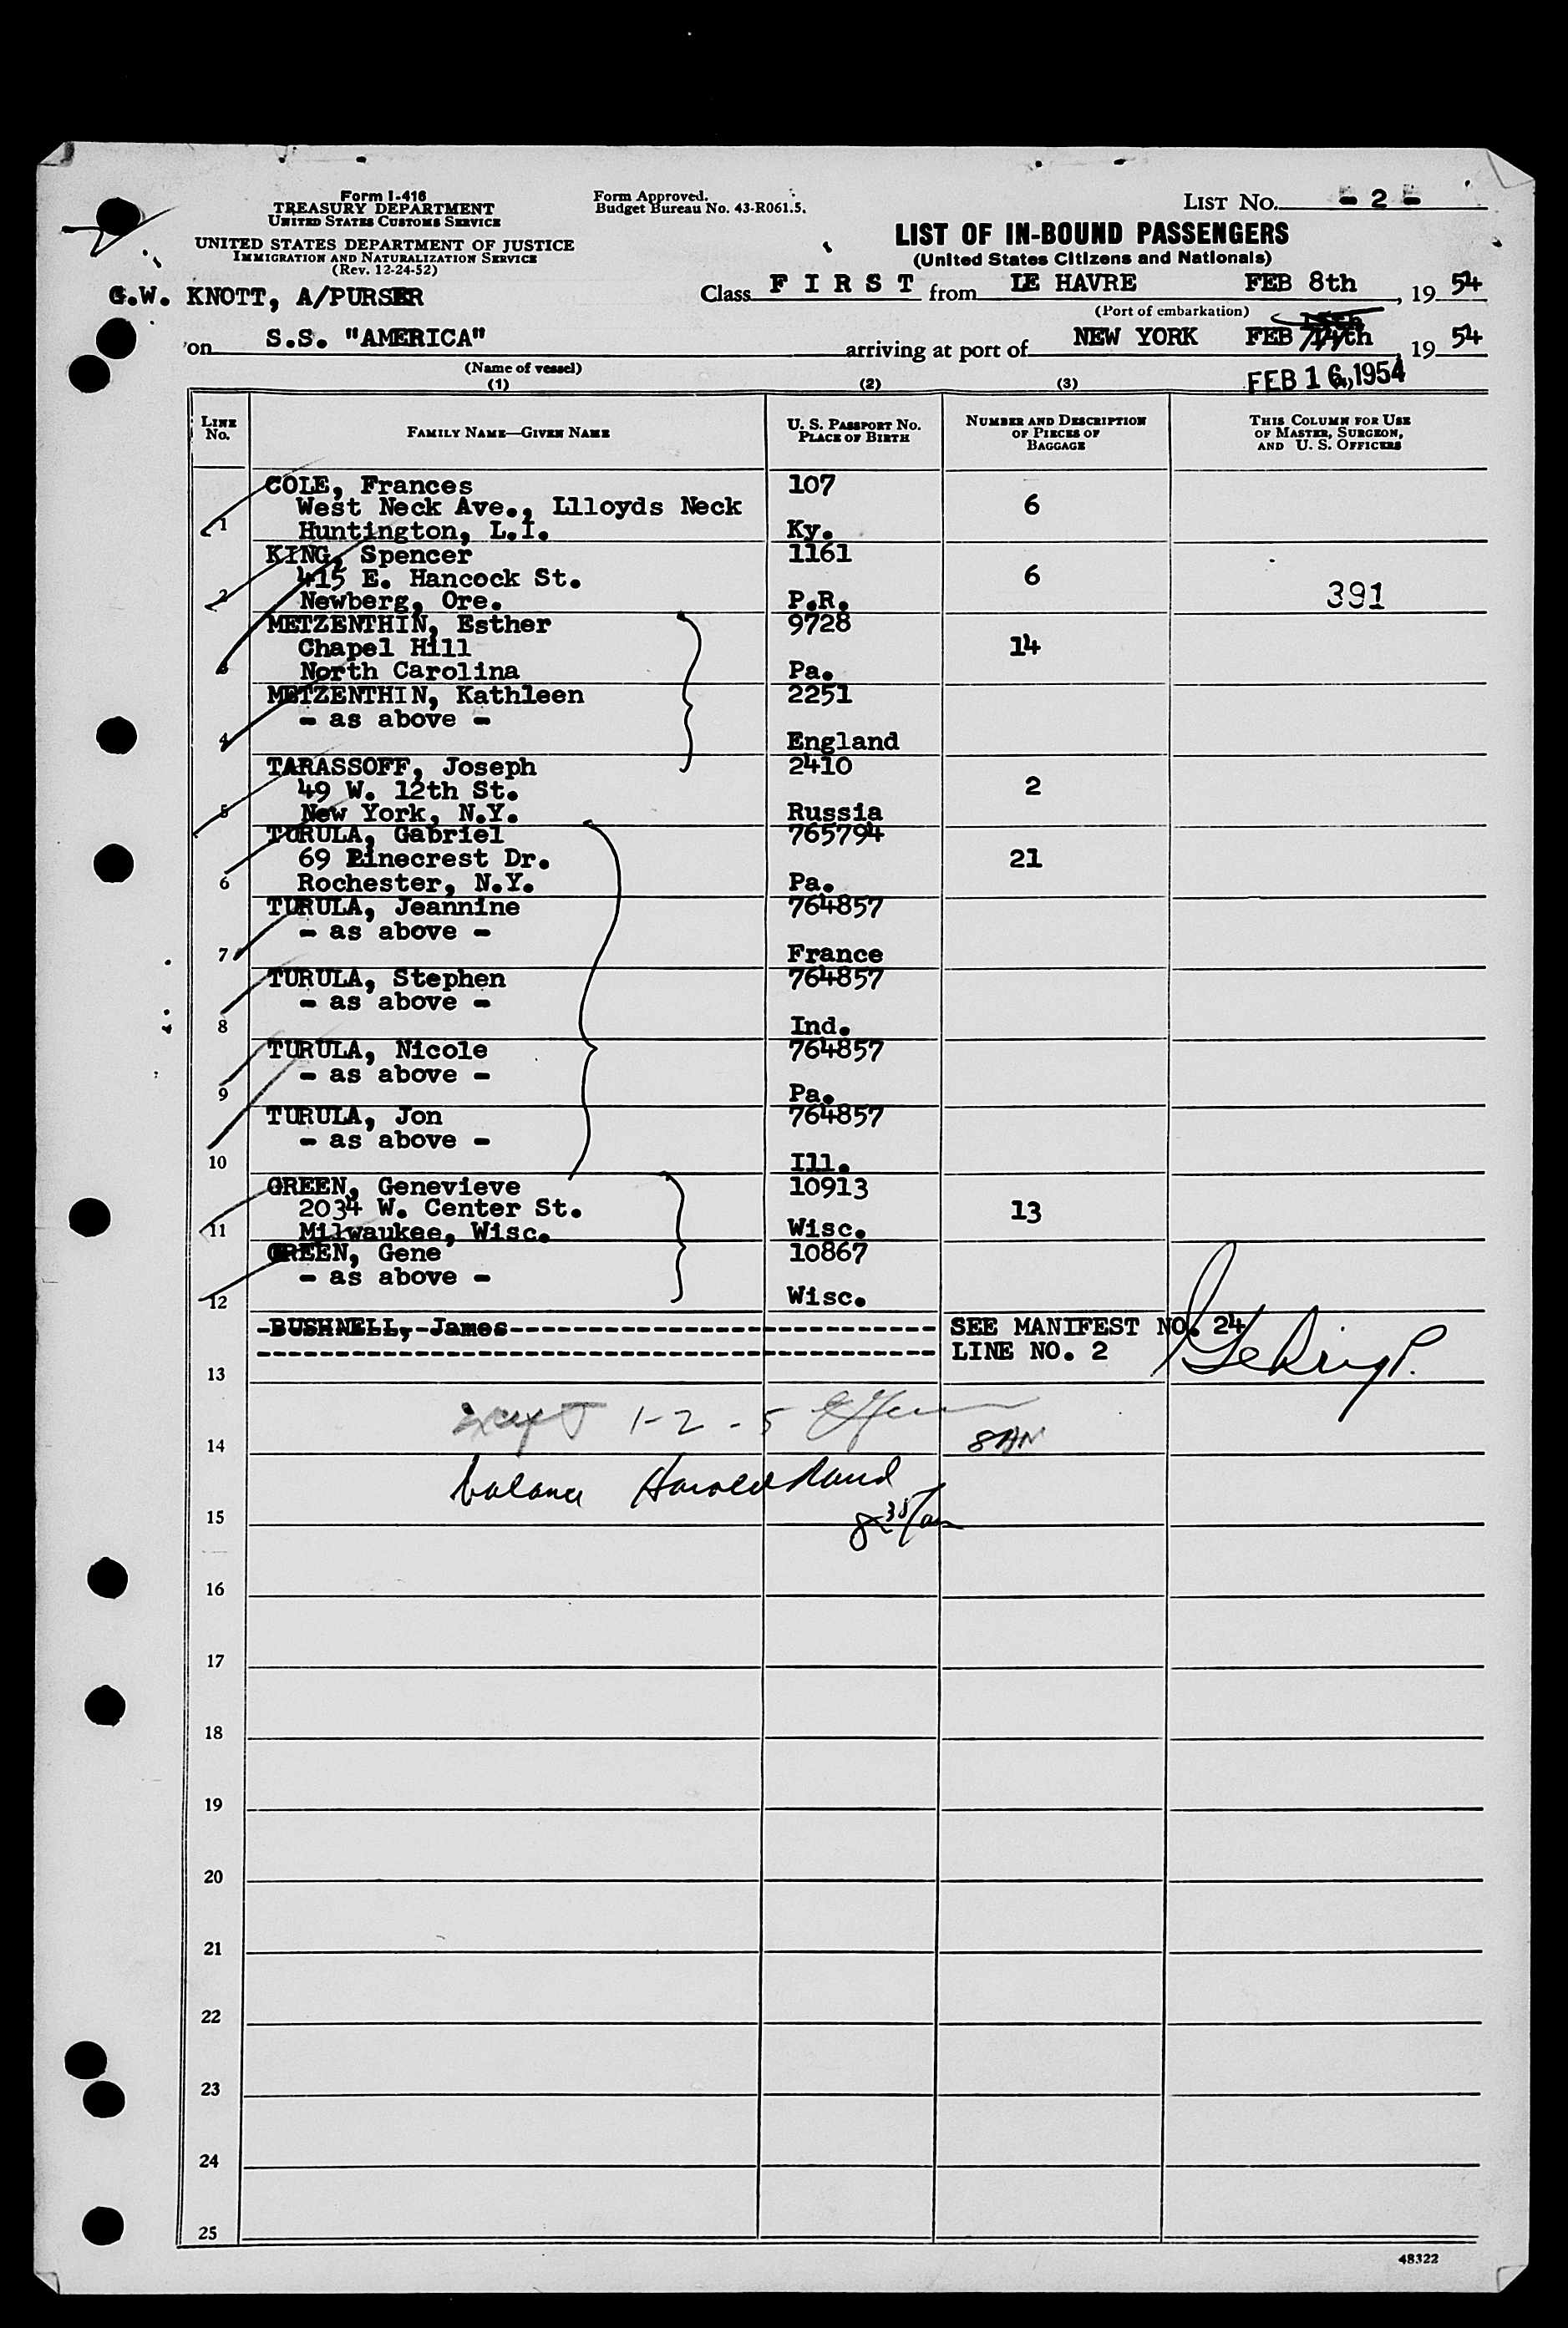 Form I-416
TREASURY DEPARTMENT
UNITED STATES CUSTOMS SERVICE
UNITED STATES DEPARTMENT OF JUSTICE
IMMIGRATION AND NATURALIZATION SERVICE
(Rev. 12-24-52)
Form Approved.
Budget Bureau No. 43-R061.5.
LIST NO. - 2 -
LIST OF IN-BOUND PASSENGERS
(United States Citizens and Nationals)
G.W. KNOTT, A/PURSER
Class F I R S T from LE HAVRE FEB 8th, 19 54
(Port of embarkation)
on S.S. "AMERICA" arriving at port of NEW YORK FEB 19 54
(Name of vessel)
FEB 16, 1954
(1) (2) (3)
LINE No. FAMILY NAME—GIVEN NAME U. S. PASSPORT NO. PLACE OF BIRTH NUMBER AND DESCRIPTION OF PIECES OF BAGGAGE THIS COLUMN FOR USE OF MASTER, SURGEON, AND U. S. OFFICERS
COLE, Frances 107
West Neck Ave., Llloyds Neck 6
1 Huntington, L.I. Ky.
KING, Spencer 1161
415 E. Hancock St. 6
2 Newberg, Ore. P.R. 391
METZENTHIN, Esther 9728
Chapel Hill 14
3 North Carolina Pa.
METZENTHIN, Kathleen 2251
- as above -
4 England
TARASSOFF, Joseph 2410
49 W. 12th St. 2
5 New York, N.Y. Russia
TURULA, Gabriel 765794
69 Pinecrest Dr. 21
6 Rochester, N.Y. Pa.
TURULA, Jeannine 764857
- as above -
7 France
TURULA, Stephen 764857
- as above -
8 Ind.
TURULA, Nicole 764857
- as above -
9 Pa.
TURULA, Jon 764857
- as above -
10 Ill.
GREEN, Genevieve 10913
2034 W. Center St. 13
11 Milwaukee, Wisc. Wisc.
GREEN, Gene 10867
- as above -
12 Wisc.
-BUSHNELL, James- SEE MANIFEST NO. 24
LINE NO. 2
13
except 1-2-5 8 AM
14
balance Harold Rand
15
8 30/am
16
17
18
19
20
21
22
23
24
25
48322